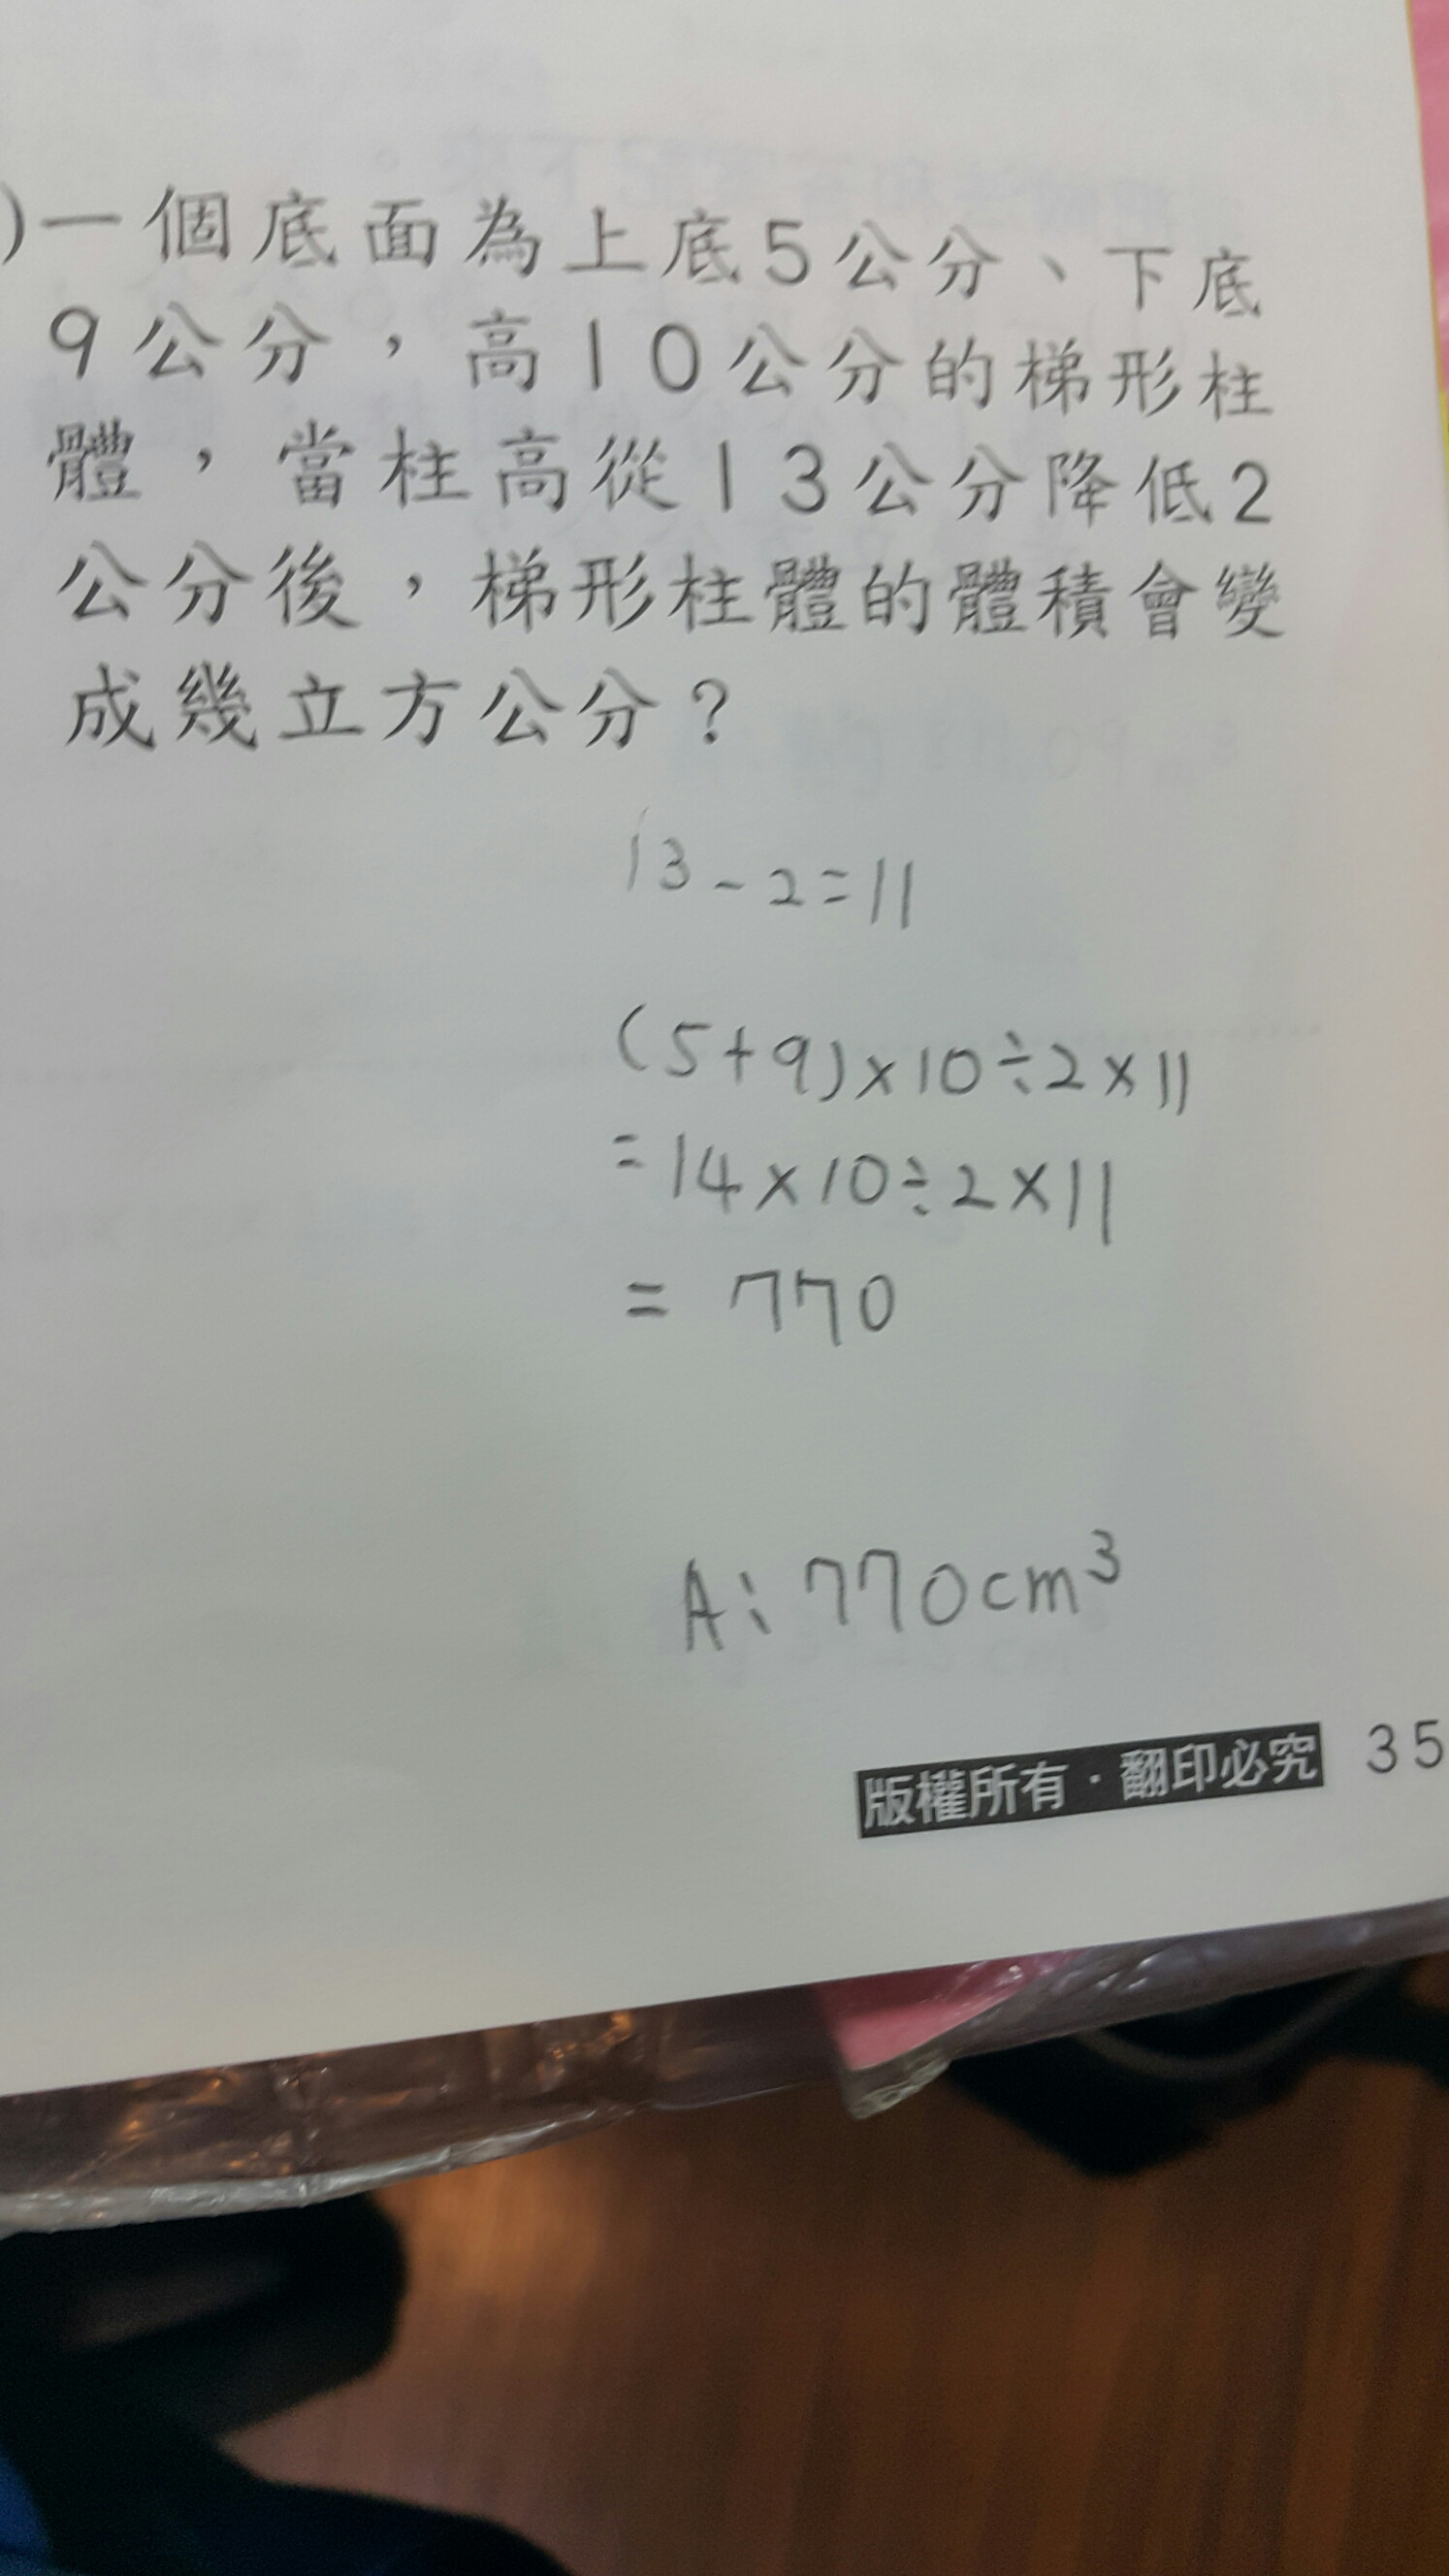 )一個底面為上底5公分、下底
9公分,高10公分的梯形柱
體,當柱高從13公分降低2
公分後,梯形柱體的體積會變
成幾立方公分?
13-2=11
(5+9)×10÷2×11
=14×10÷2×11
= 770
A:770cm³
版權所有·翻印必究 35